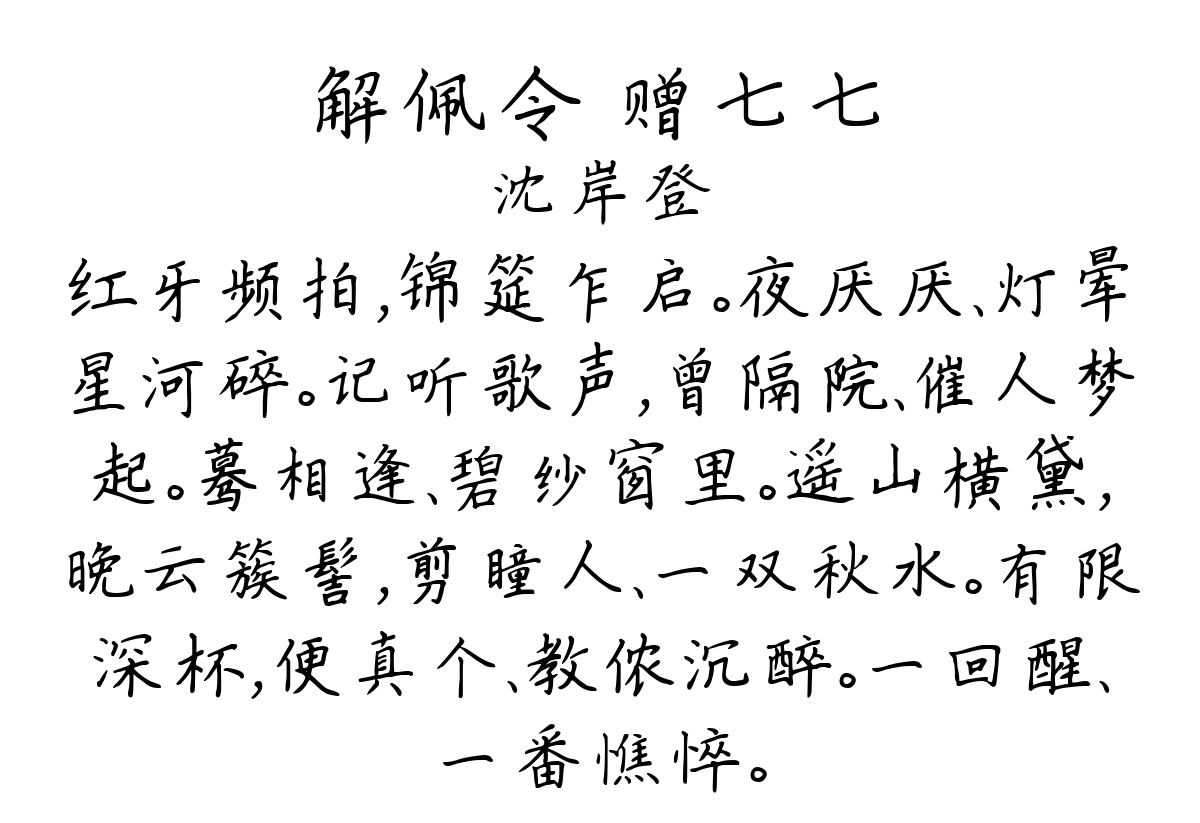 解佩令 赠七七
沈岸登
红牙频拍,锦筵乍启。夜厌厌、灯晕
星河碎。记听歌声,曾隔院、催人梦
起。蓦相逢、碧纱窗里。遥山横黛,
晚云簇髻,剪瞳人、一双秋水。有限
深杯,便真个、教侬沉醉。一回醒、
一番憔悴。